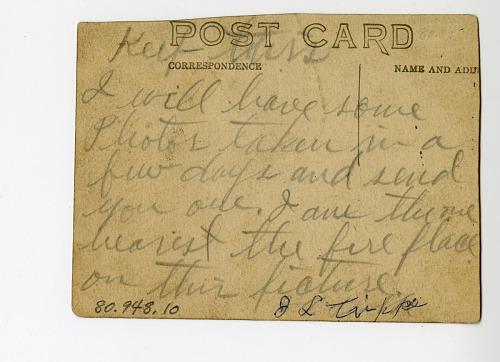 POST CARD
Keep this
CORRESPONDENCE
NAME AND ADD
I will have some
Photos taken in a
few days and send
you one. I am the one
nearest the fire place
on this picture.
80.948.10